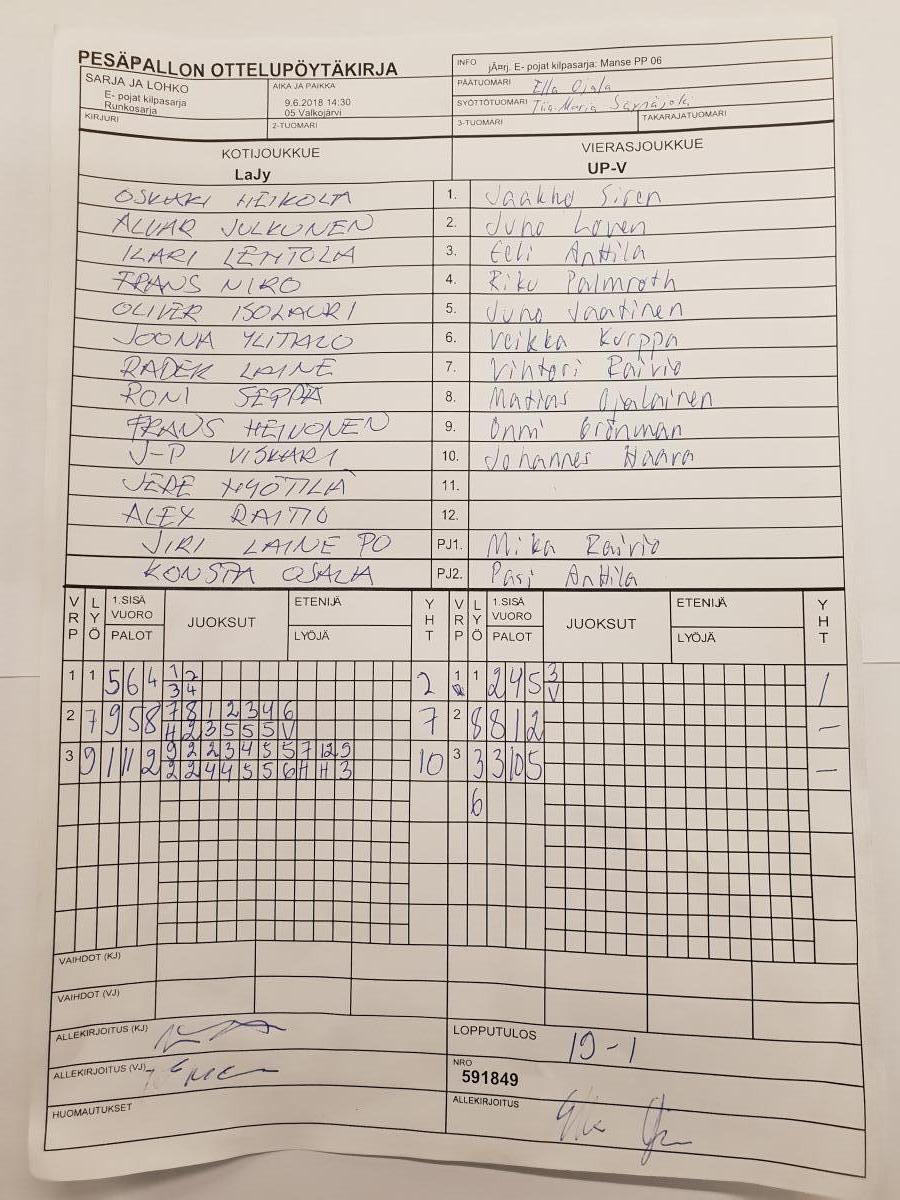 PESÄPALLON OTTELUPÖYTÄKIRJA
INFO jÃ¤rj. E- pojat kilpasarja: Manse PP 06
SARJA JA LOHKO
E- pojat kilpasarja
Runkosarja
AIKA JA PAIKKA
9.6.2018 14:30
05 Valkojärvi
PÄÄTUOMARI Ella Ojala
SYÖTTÖTUOMARI Tiia-Maria
KIRJURI
2-TUOMARI
3-TUOMARI
TAKARAJATUOMARI
KOTIJOUKKUE
LaJy
VIERASJOUKKUE
UP-V
OSKARI HEIKOLA 1. Jaakko Siren
ALVAR JULKUNEN 2. Juho Loven
ILARI LEHTOLA 3. Eeli Anttila
FRANS NIRO 4. Riku Palmroth
OLIVER ISOLAURI 5. Juho Jaatinen
JOONA YLITALO 6. Veikka Kurppa
RADEK LAINE 7. Vihtori Rairio
RONI SEPPÄ 8. Matias Ojalainen
FRANS HEINONEN 9. Onni Grönman
J-P VISKARI 10. Johannes Haara
JERE HYÖTILÄ 11.
ALEX RAITIO 12.
JIRI LAINE PO PJ1. Mika Rairio
KONSTA OSALA PJ2. Pasi Anttila
VRP LYÖ 1.SISÄ VUORO PALOT JUOKSUT ETENIJÄ LYÖJÄ YHT VRP LYÖ 1.SISÄ VUORO PALOT JUOKSUT ETENIJÄ LYÖJÄ YHT
1 1 5 6 4 1 2 2 1 1 2 4 5 3 1
3 4 V
2 7 9 5 8 7 8 1 2 3 4 6 7 2 8 8 1 2 –
H 2 3 5 5 5 V
3 9 1 11 2 9 2 2 3 4 5 5 7 12 9 10 3 3 3 10 5 –
2 2 4 4 5 5 6 H H 3
6
VAIHDOT (KJ)
VAIHDOT (VJ)
ALLEKIRJOITUS (KJ)
LOPPUTULOS 19-1
ALLEKIRJOITUS (VJ)
NRO
591849
HUOMAUTUKSET
ALLEKIRJOITUS